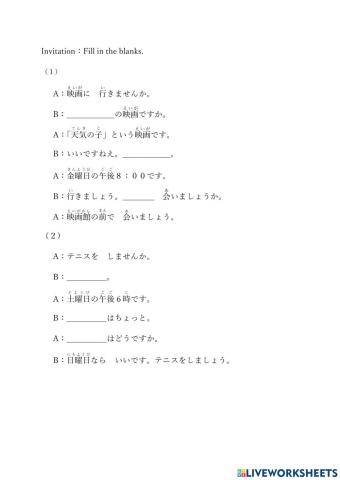 Invitation：Fill in the blanks.
（1）
A：映画に　行きませんか。
B：____________の映画ですか。
A：「天気の子」という映画です。
B：いいですねえ。____________。
A：金曜日の午後８：００です。
B：行きましょう。________　会いましょうか。
A：映画館の前で　会いましょう。
（2）
A：テニスを　しませんか。
B：__________。
A：土曜日の午後６時です。
B：__________はちょっと。
A：__________はどうですか。
B：日曜日なら　いいです。テニスをしましょう。
LIVEWORKSHEETS